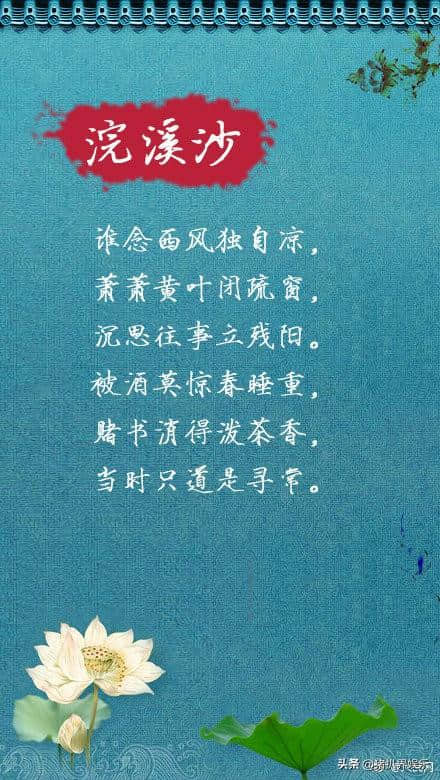 浣溪沙
谁念西风独自凉，
萧萧黄叶闭疏窗，
沉思往事立残阳。
被酒莫惊春睡重，
赌书消得泼茶香，
当时只道是寻常。